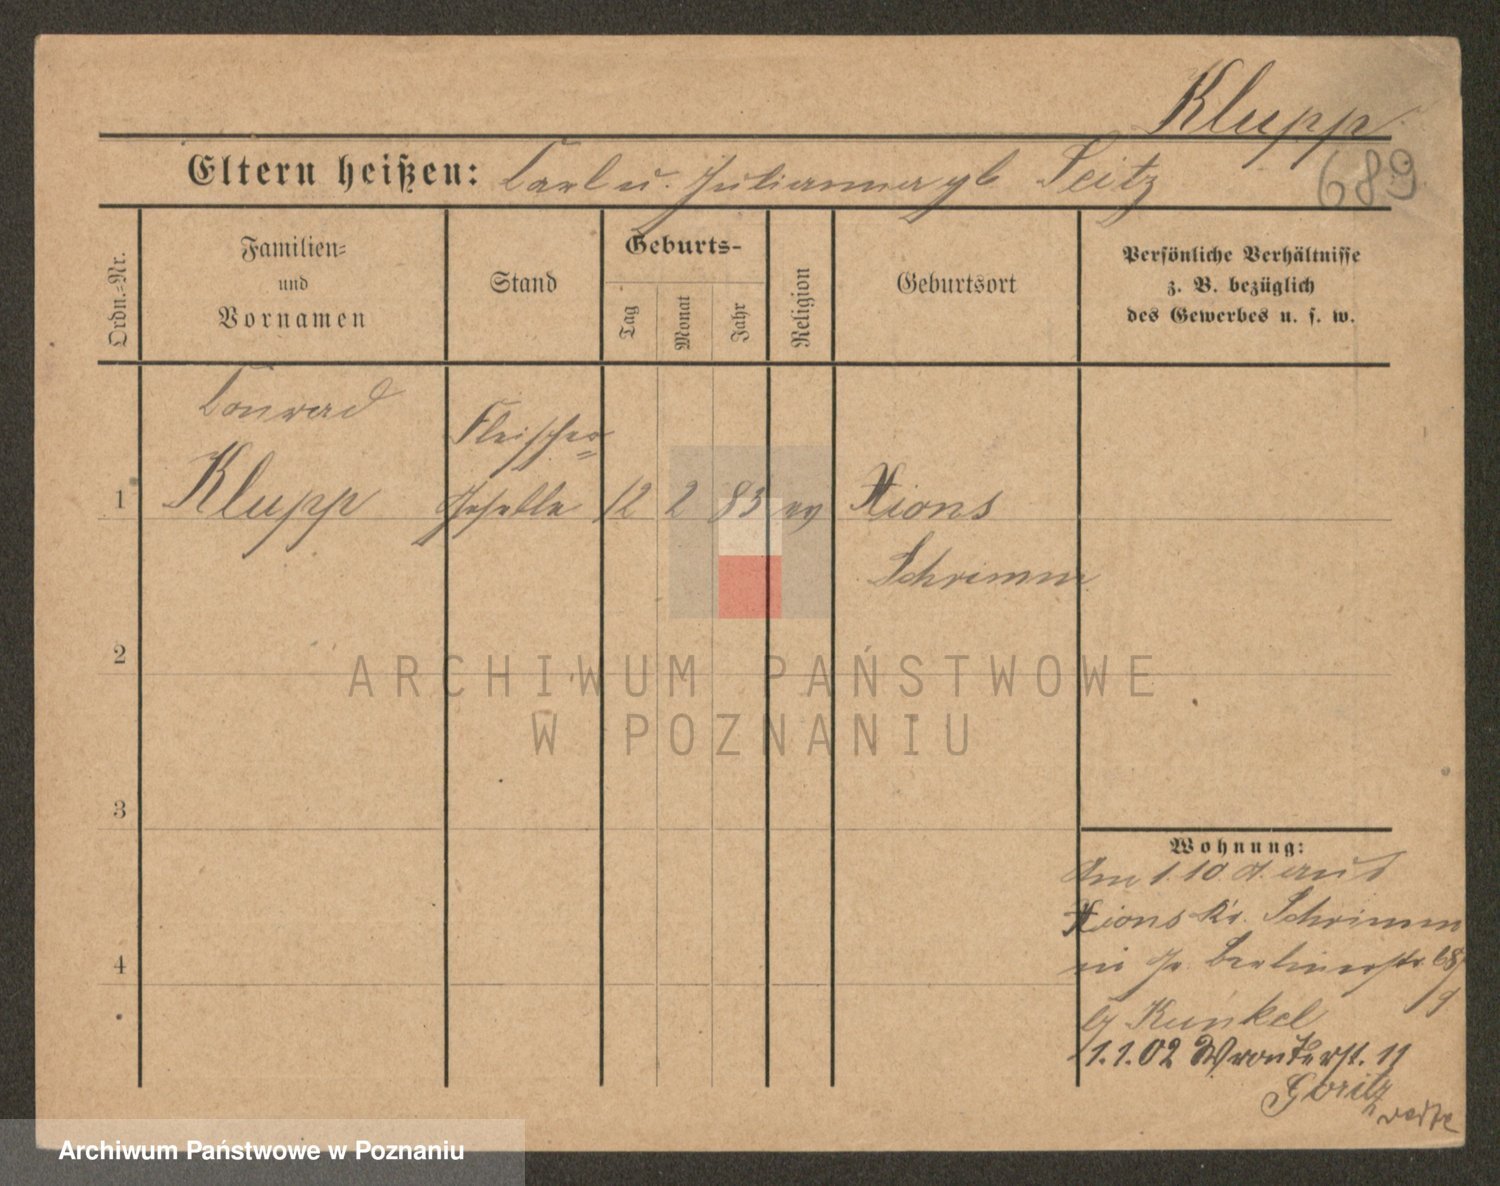 Klupp
689
Eltern heißen: Carl u. Julianna gb Seitz
Ordn.=Nr.
Familien=
und
Vornamen
Stand
Geburts-
Tag
Monat
Jahr
Religion
Geburtsort
Persönliche Verhältnisse
z. B. bezüglich
des Gewerbes u. s. w.
Conrad
Fleischer=
1 Klupp Geselle 12 2 83 ev Xions
Schrimm
2
ARCHIWUM PAŃSTWOWE
W POZNANIU
3
Wohnung:
Am 1.10 d. aus
Xions Kr. Schrimm
4
Berlinerstr.
b/ Kunkel
1.1.02 Wronkerst. 11
Goritz
Archiwum Państwowe w Poznaniu